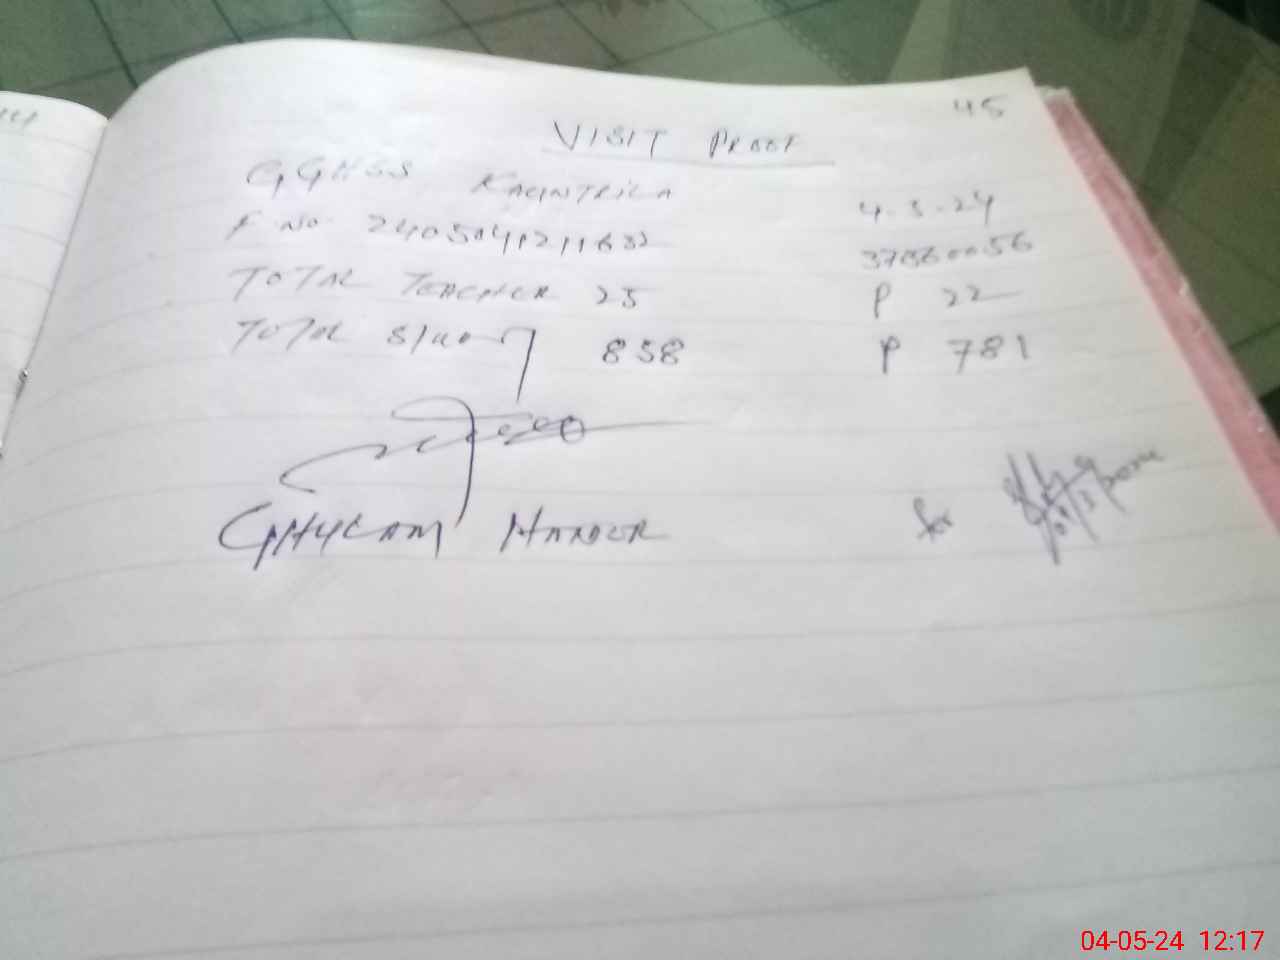 45
VISIT PROOF
GGHSS KAHNTRILA 4.5.24
F No. 2405041211632 37360056
TOTAL TEACHER 25 P 22
TOTAL 858 P 781
GHULAM HAIDER for
04-05-24 12:17